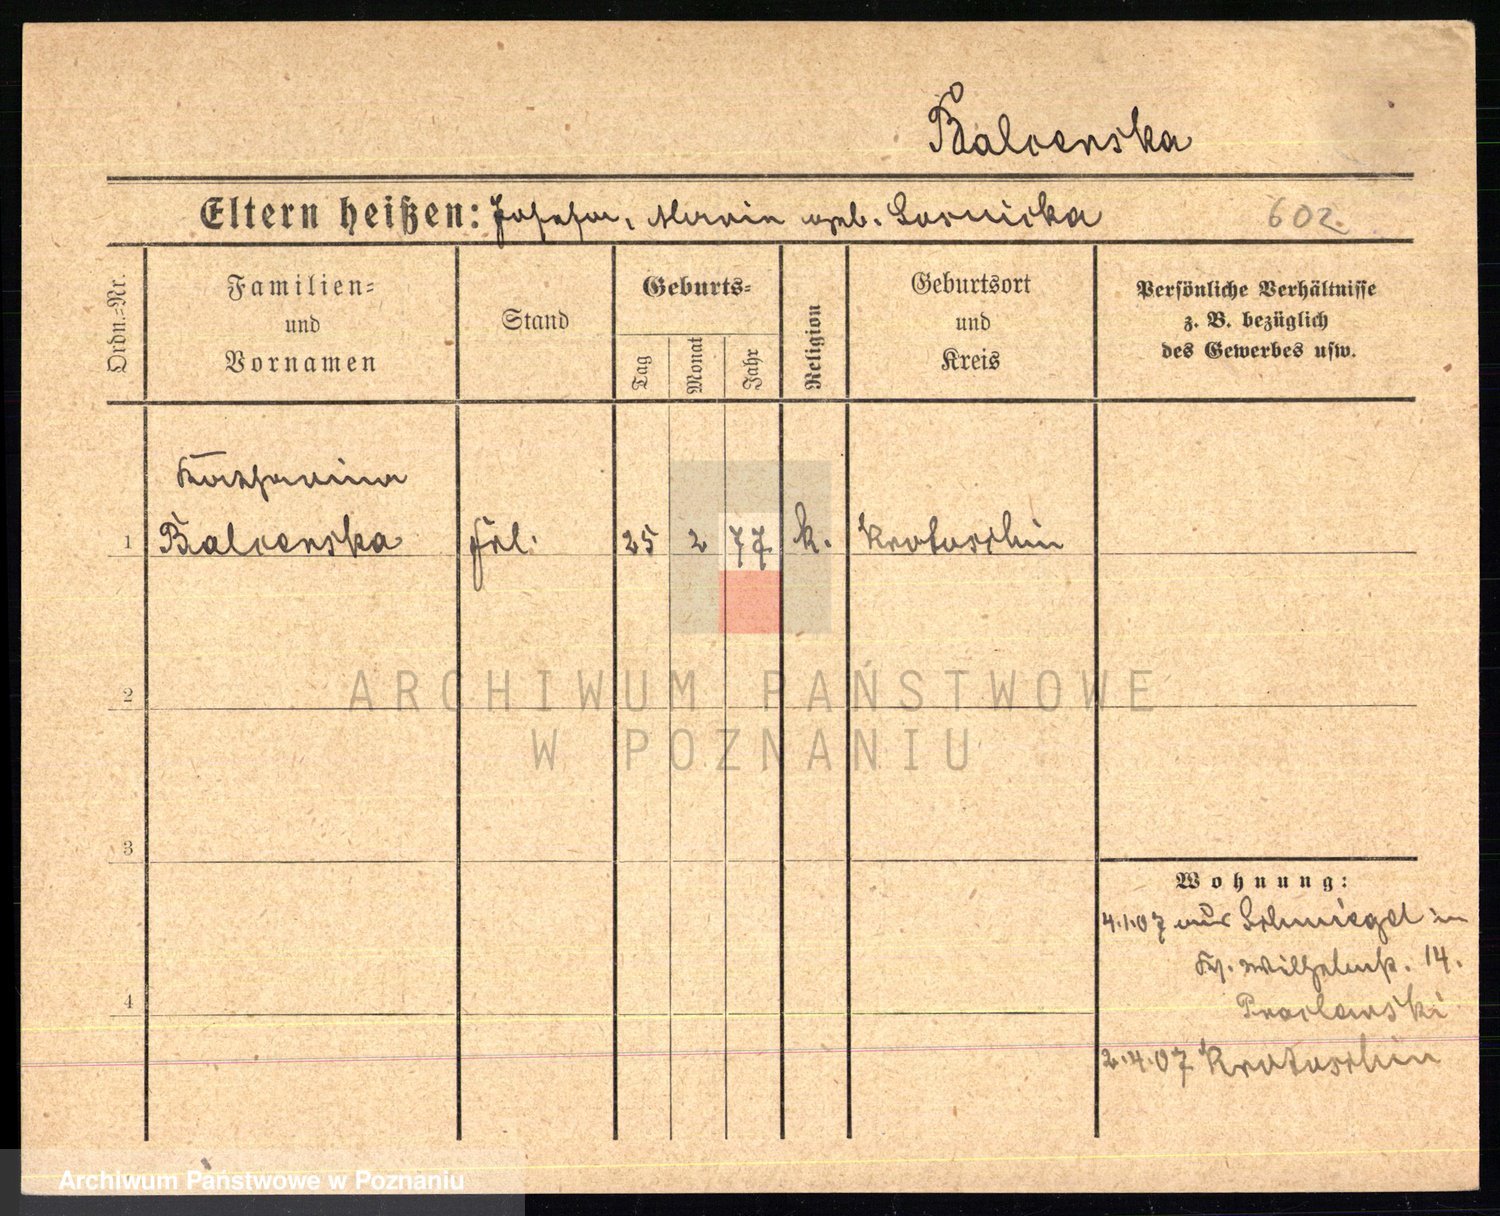 Balcerska
Eltern heißen: Josefa, Maria geb. Gornicka 602.
Ordn.-Nr.
Familien-
und
Vornamen
Stand
Geburts-
Tag
Monat
Jahr
Religion
Geburtsort
und
Kreis
Persönliche Verhältnisse
z. B. bezüglich
des Gewerbes usw.
Katharina
1 Balcerska Frl. 25 2 77 k. Krotoschin
2
ARCHIWUM PAŃSTWOWE
W POZNANIU
3
Wohnung:
4.1.07 aus Schmiegel in
14.
4
2.4.07 Krotoschin
Archiwum Państwowe w Poznaniu